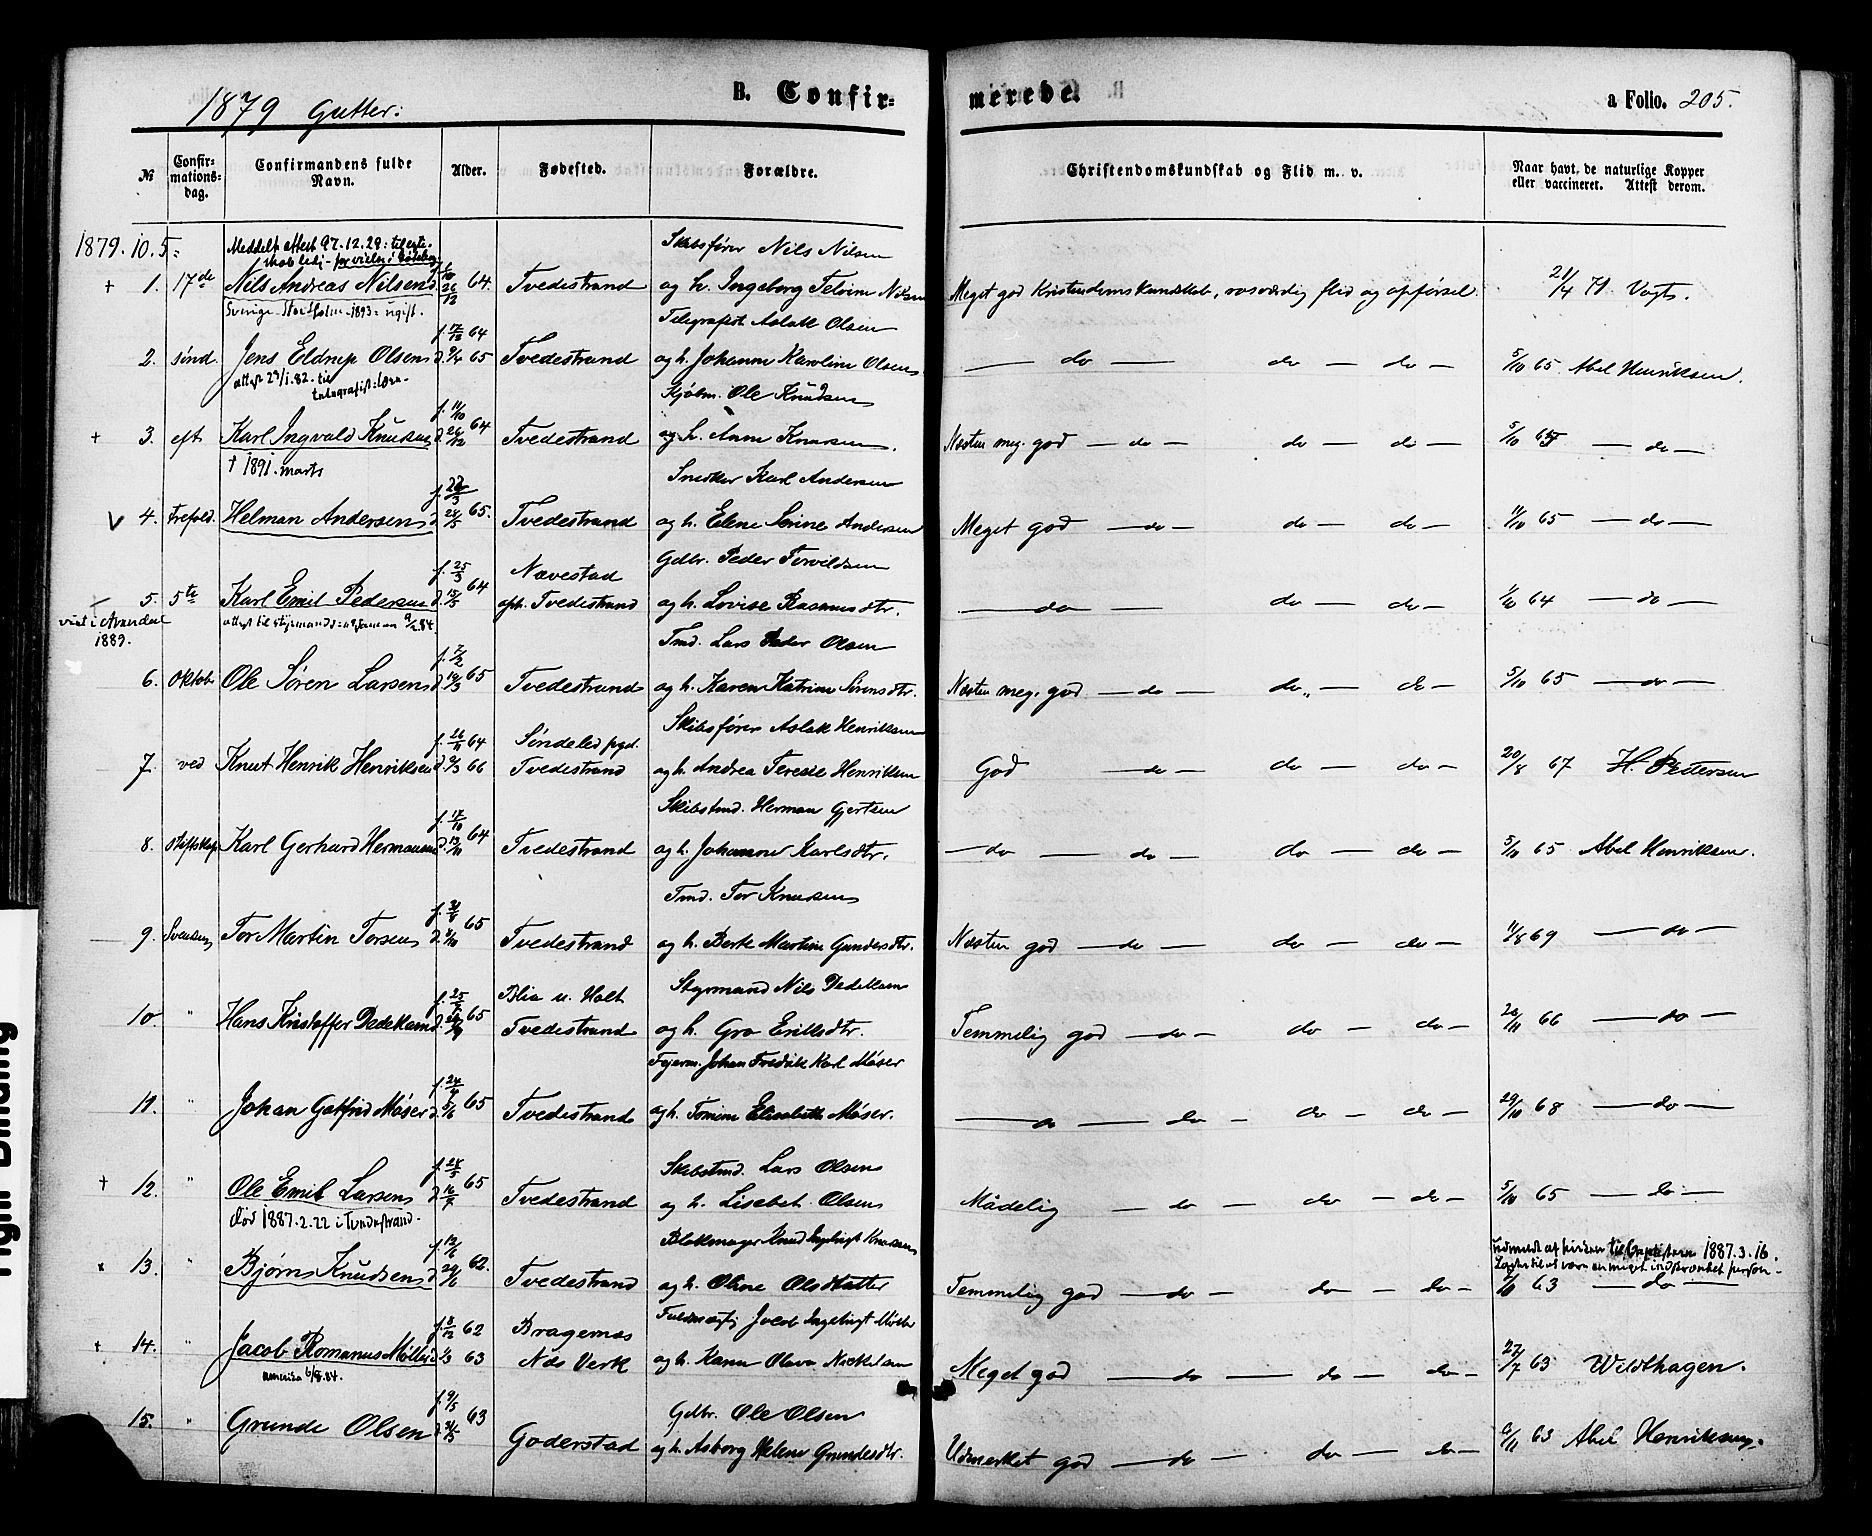 1879 Gutter:
B. Confir=
merede.
a Folio. 205.
№
Confir=
mations=
dag.
Confirmandens fulde
Navn.
Alder.
Fødested.
Forældre.
Christendomskundskab og Flid m. v.
Naar havt, de naturlige Kopper
eller vaccineret. Attest derom.
1879. 10. 5:
Meddelt attest 97.12.29:
Skibsfører Nils Nilsen
+ 1. 17de Nils Andreas Nilsen 26/12 64. Tvedestrand og h. Ingeborg Nilsen Meget god Kristendomskundskab, rosværdig flid og opførsel. 21/4 71 Vogt.
Sverige Stockholm 1893 = ugift.
Telegrafist Aslak Olsen
f. 64
2. sønd. Jens Eldrup Olsen d. 9/4 65 Tvedestrand og h. Johanne Karoline Olsen. — do — do — do — 5/10 65 Abel Henriksen.
attest 29/1.82. til
telegrafist:
Kjøbm. Ole Knudsen
f. 11/10
+ 3. eft Karl Ingvald Knudsen d. 26/12 64 Tvedestrand og h. Anne Knudsen. Næsten meg. god — do — do — do — 5/10 65 — do —
† 1891. marts
Snedker Karl Andersen
f. 22/3
V 4. trefold. Helman Andersen d. 24/5 65. Tvedestrand og h. Elene Sørine Andersen Meget god — do — do — do — 11/10 65 — do —
Gdbr. Peder Torvildsen
f. 25/3 Nævestad
5. 5te Karl Emil Pedersen d. 64 oph. Tvedestrand og h. Lovise Rasmusdtr. — do — do — do — 1/10 64 — do —
viet i Arendal
1889.
attest til styrmands
Tmd. Lars Peder Olsen
f. 7/2
6. Oktob. Ole Søren Larsen d. 19/3 65 Tvedestrand og h. Karen Katrine Sørensdtr. Næsten meg. god — do — do — do — 5/10 65 — do —
Skibsfører Aslak Henriksen
f. 26/11 64 Søndeled pgd.
7. ved Knut Henrik Henriksen d. 9/3 66 Tvedestrand og h. Andrea Terese Henriksen God — do — do — do — 20/8 67 H. Pedersen
Skibstmd. Herman Gjertsen
f. 17/10
8. Stiftskap. Karl Gerhard Hermansen d. 13/11 64 Tvedestrand og h. Johanne Karlsdtr. — do — do — do — do — 5/10 65 Abel Henriksen.
Tmd. Tor Knudsen
9. Svensen Tor Martin Torsen 65 Tvedestrand og h. Berte Martine Gundersdtr. Næsten god — do — do — do — 11/8 69 — do —
Styrmand Nils Dedekam
Blia u. Holt
10. " Hans Kristoffer Dedekam 65 Tvedestrand og h. Gro Eriksdtr. Temmelig god — do — do — do — 20/11 66 — do —
Johan Fredrik Karl Møser
f. 24/4
11. " Johan Gotfrid Møser d. 5/6 65 Tvedestrand og h. Tomine Elisabeth Møser. — do — do — do — do — 29/10 68 — do —
Skibstmd. Lars Olsen
f. 24/5
+ 12. " Ole Emil Larsen d. 16/7 65 Tvedestrand og h. Lisebet Olsen Mådelig — do — do — do — 5/10 65 — do —
død 1887.2.22 i Tvedestrand.
Blokmager Knud Ingebrigt Knudsen
Udmeldt af kirken til baptisterne 1887.3.16.
x 13. Bjørn Knudsen d. 29/6 62. Tvedestrand og h. Oline Olsdatter Temmelig god — do — do — do — 63 — do —
Fuldmægtig Jacob Ingebrigt Møller
62 Bragernæs
+ 14. " Jacob Romanus Møller 1/3 63 Næs Verk og h. Karen Olava Nickelsen Meget god — do — do — do — 27/7 63 Wildthagen.
Amerika 6/8.84.
Gdbr. Ole Olsen
f. 9/5
15. " Grunde Olsen d. 63 Goderstad og h. Asborg Helene Grundesdtr. Udmerket god — do — do — do — 63 Abel Henriksen.